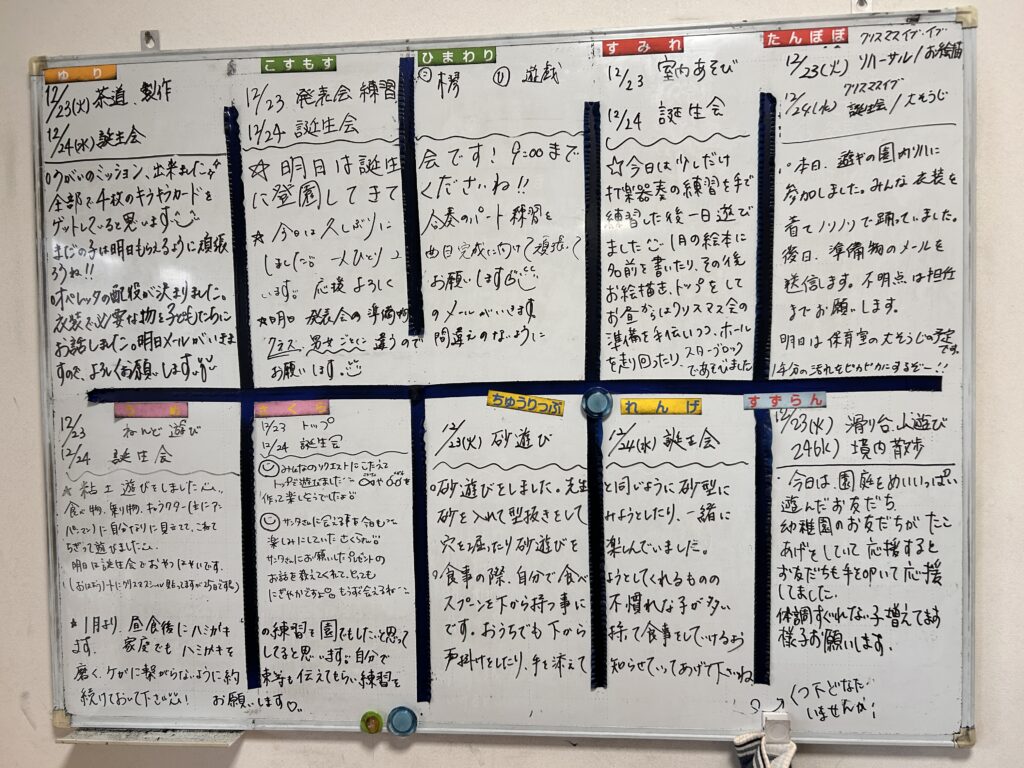 ゆり
12/23(火)茶道、製作
12/24(水)誕生会
○うがいのミッション、出来ました
全部で4枚のキラキラカードを
ゲットしてると思います
まだの子は明日もらえるように頑張
ろうね!!
○オペレッタの配役が決まりました。
衣装で必要な物を子どもたちに
お話しました。明日メールがいきま
すので、よろしくお願いします。
こすもす
12/23 発表会 練習
12/24 誕生会
☆明日は誕生
に登園してきて
☆今日は久しぶりに
しました 一人ひとり
います。応援よろしく
☆明日 発表会の準備物
クラス、男女ごとに違うので
お願いします。
ひまわり
遊戯
会です!9:00まで
くださいね!!
合奏のパート練習を
曲目完成に向けて頑張って
お願いします
のメールがいきます
間違えのないように
すみれ
12/23 室内あそび
12/24 誕生会
☆今日は少しだけ
打楽器奏の練習を手で
練習した後一日遊び
ました 1月の絵本に
名前を書いたり、その後
お絵描き、トップをして
お昼からはクリスマス会の
準備を手伝いつつ、ホール
を走り回ったり、スターブロック
であそびました
たんぽぽ
クリスマスイブ・イブ
12/23(火) リハーサル/お絵描
クリスマスイブ
12/24(水) 誕生会/大そうじ
○本日、遊ぎの園内リハに
参加しました。みんな衣装を
着てノリノリで踊っていました。
後日、準備物のメールを
送信します。不明点は担任
までお願いします。
明日は保育室の大そうじの予定です。
1年分の汚れをピカピカにするぞー!!
うめ
12/23 ねんど遊び
12/24 誕生会
☆粘土遊びをしました
食べ物、乗り物、キャラクター
パンマン)に自分なりに見立てて、こねて
ちぎって遊びました
明日は誕生会でおやつバイキングです。
*1月より、昼食後にハミガキ
ます。家庭でもハミガキを
磨く、ケガに繋がらないように約
続けておいて下さい
さくら
12/23 トップ
12/24 誕生会
みんなのリクエストにこたえて
トップで遊びました
作って楽しそうでしたよ
サンタさんに会える事を今日も
楽しみにしていたさくらさん
サンタさんにお願いしたプレゼントの
お話を教えてくれて、とっても
にぎやかですよ もうすぐ会えるね
の練習を園でもしたいと思って
してると思います。自分で
束等も伝えてもらい練習を
お願いします♡
ちゅうりっぷ
12/23(火) 砂遊び
○砂遊びをしました。先生
砂を入れて型抜きをして
穴を掘ったり砂遊びを
○食事の際、自分で食べ
スプーンを下から持つ事に
です。おうちでも下から
声掛けをしたり、手を添えて
れんげ
12/24(水)誕生会
と同じように砂型に
みようとしたり、一緒に
楽しんでいました。
ようとしてくれるものの
不慣れな子が多い
持って食事をしていけるよ
知らせていってあげて下さいね
すずらん
12/23(火) 滑り台、山遊び
24(水) 境内散歩
○今日は、園庭をめいいっぱい
遊んだお友だち
幼稚園のお友だちがたこ
あげをしていて応援すると
お友だちも手を叩いて応援
してました。
体調すぐれない子増えてます
様子お願いします。
くつ下どなた
いませんか?